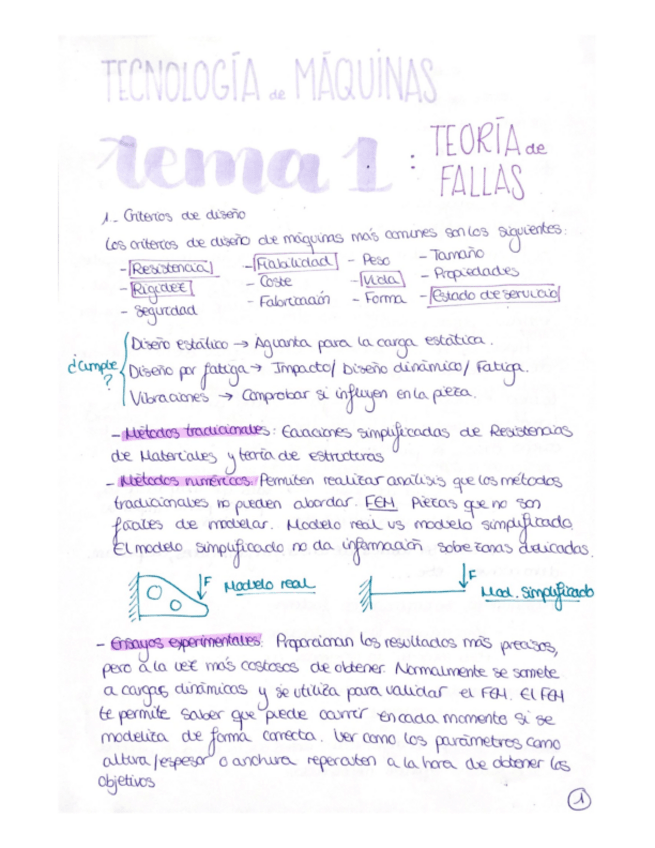 TECNOLOGÍA de MÁQUINAS
tema 1 : TEORÍA de FALLAS
1.- Criterios de diseño
Los criterios de diseño de máquinas más comunes son los siguientes:
- Resistencia - Fiabilidad - Peso - Tamaño
- Rigidez - Coste - Vida - Propiedades
- Seguridad - Fabricación - Forma - Estado de servicio
¿Cumple?
Diseño estático → Aguanta para la carga estática.
Diseño por fatiga → Impacto/ Diseño dinámico/ Fatiga.
Vibraciones → Comprobar si influyen en la pieza.
- Métodos tradicionales: Ecuaciones simplificadas de Resistencias
de Materiales y teoría de estructuras
- Métodos numéricos: Permiten realizar análisis que los métodos
tradicionales no pueden abordar. FEM Piezas que no son
fáciles de modelar. Modelo real vs modelo simplificado.
El modelo simplificado no da información sobre zonas delicadas.
F Modelo real F Mod. Simplificado
- Ensayos experimentales: Proporcionan los resultados más precisos,
pero a la vez más costosos de obtener. Normalmente se somete
a cargas dinámicas y se utiliza para validar el FEM. El FEM
te permite saber que puede ocurrir en cada momento si se
modeliza de forma correcta. Ver como los parámetros como
altura/espesor o anchura repercuten a la hora de obtener los
objetivos
1